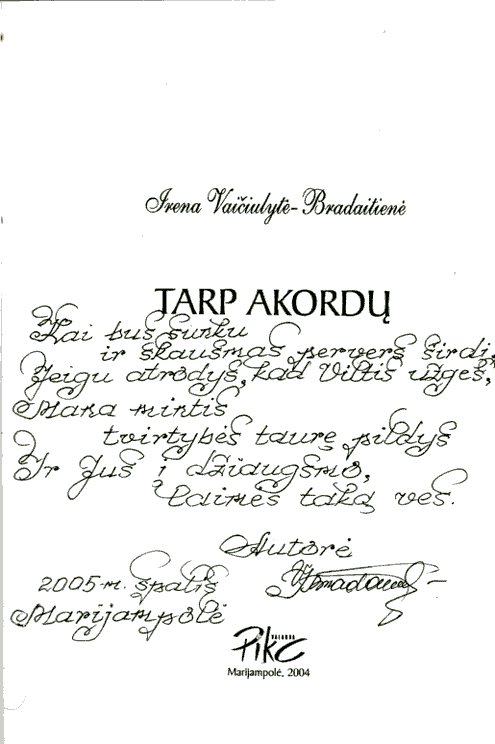 Irena Vaičiulytė-Bradaitienė
TARP AKORDŲ
Kai bus sunku
ir skausmas pervers širdį,
Jeigu atrodys, kad Viltis užges,
Mana mintis
tvirtybės taurę pildys
Ir Jus į džiaugsmo,
laimės taką ves.
Autorė
2005-m. spalis
Marijampolė
VAIZDUS
Marijampolė, 2004